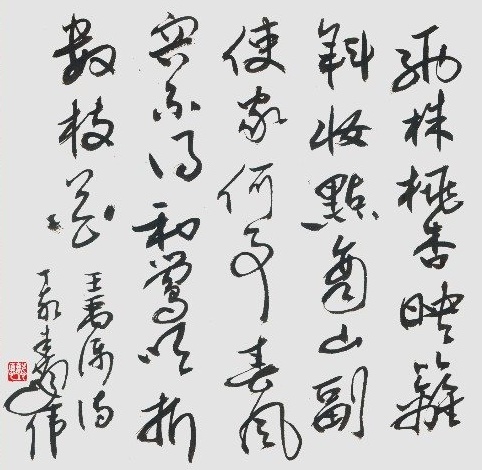 兩株桃杏映籬
斜妝點商山副
使家何事春風
容不得和鶯吹折
數枝花
王禹偁诗
丁亥 伟